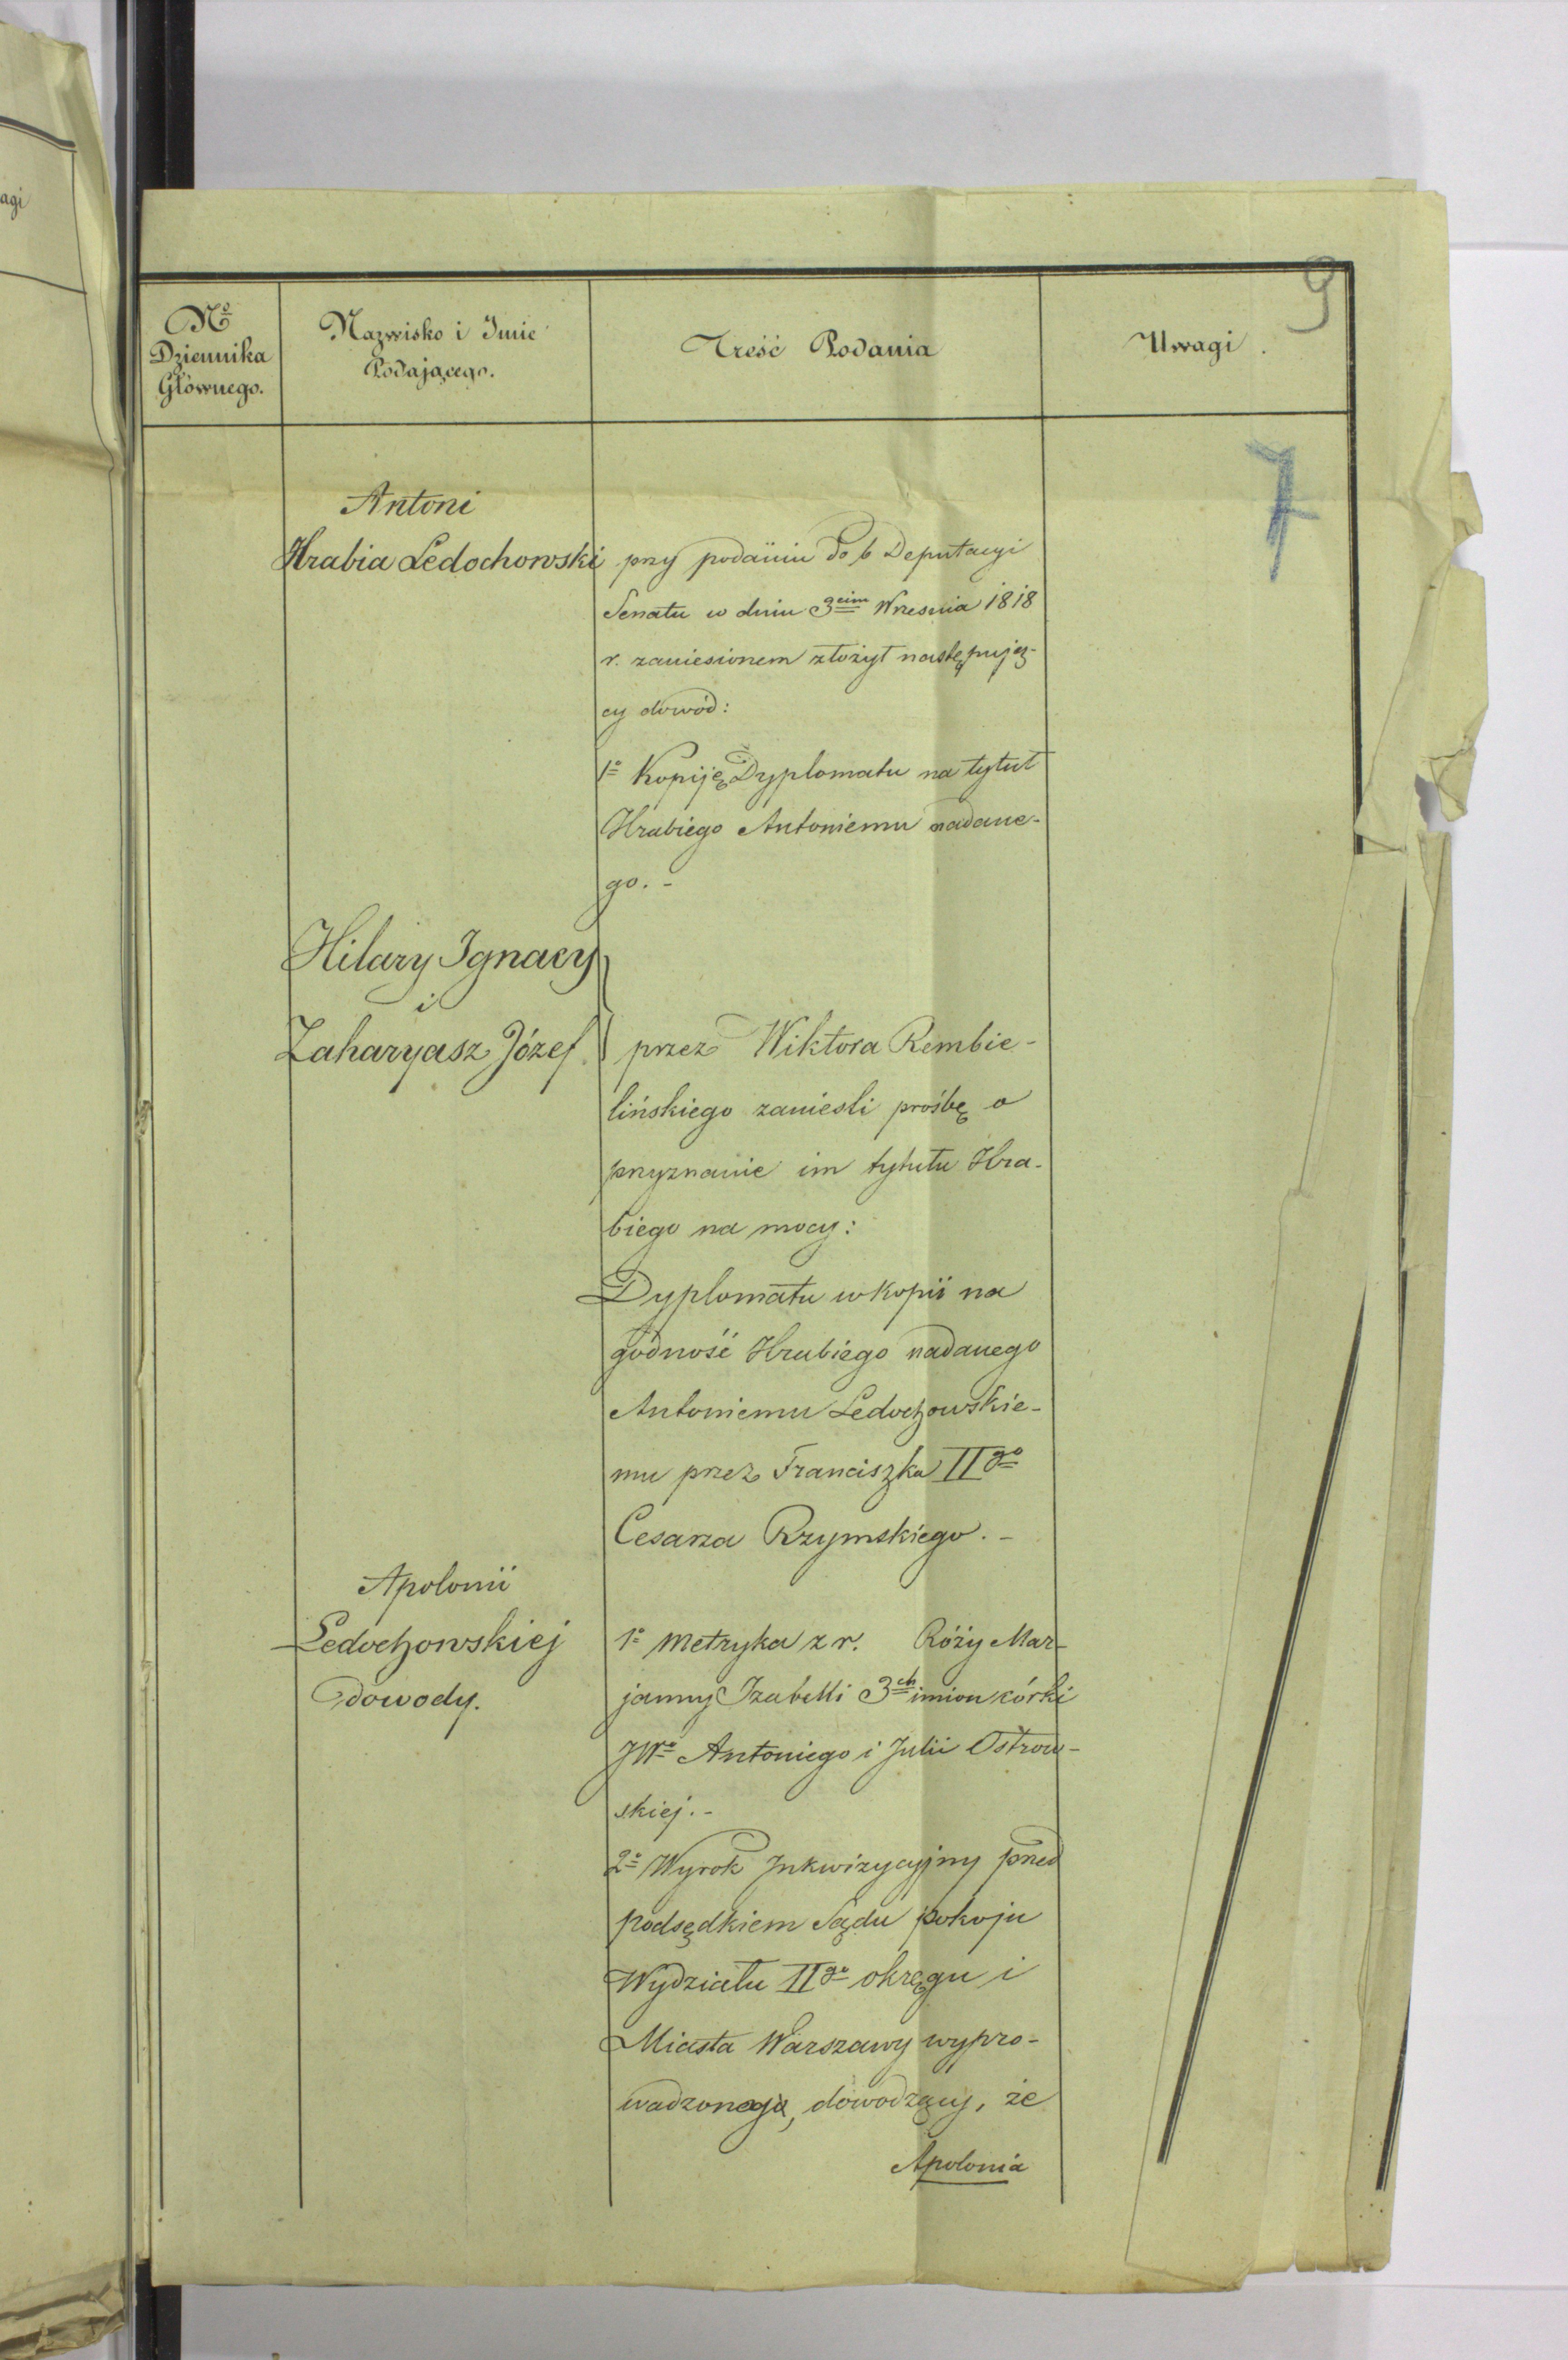 agi
9
Nº
Dziennika
Głównego.
Nazwisko i Imie
Podającego.
Treść Podania
Uwagi.
7
Antoni
Hrabia Ledochowski
przy podaniu do b Deputacyi
Senatu w dniu 3cim Wrzesnia 1818
r. zaniesionem złożył następują-
cy dowód:
1º Kopiję Dyplomatu na tytuł
Hrabiego Antoniemu nadane-
go. -
Hilary Ignacy
i
Zaharyasz Józef.
przez Wiktora Rembie-
lińskiego zaniesli prośbę o
przyznanie im tytułu Hra-
biego na mocy:
Dyplomatu w kopii na
godność Hrabiego nadanego
Antoniemu Ledochowskie-
mu przez Franciszka IIgo
Cesarza Rzymskiego. -
Apolonii
Ledochowskiej
dowody.
1º Metryka z r. Róży Mar-
janny Izabelli 3ch imion córki
JWo Antoniego i Julii Ostrow-
skiej. -
2º Wyrok Inkwizycyjny przed
podsędkiem Sądu pokoju
Wydziału IIgo okręgu i
Miasta Warszawy wypro-
wadzonego, dowodzący, że
Apolonia